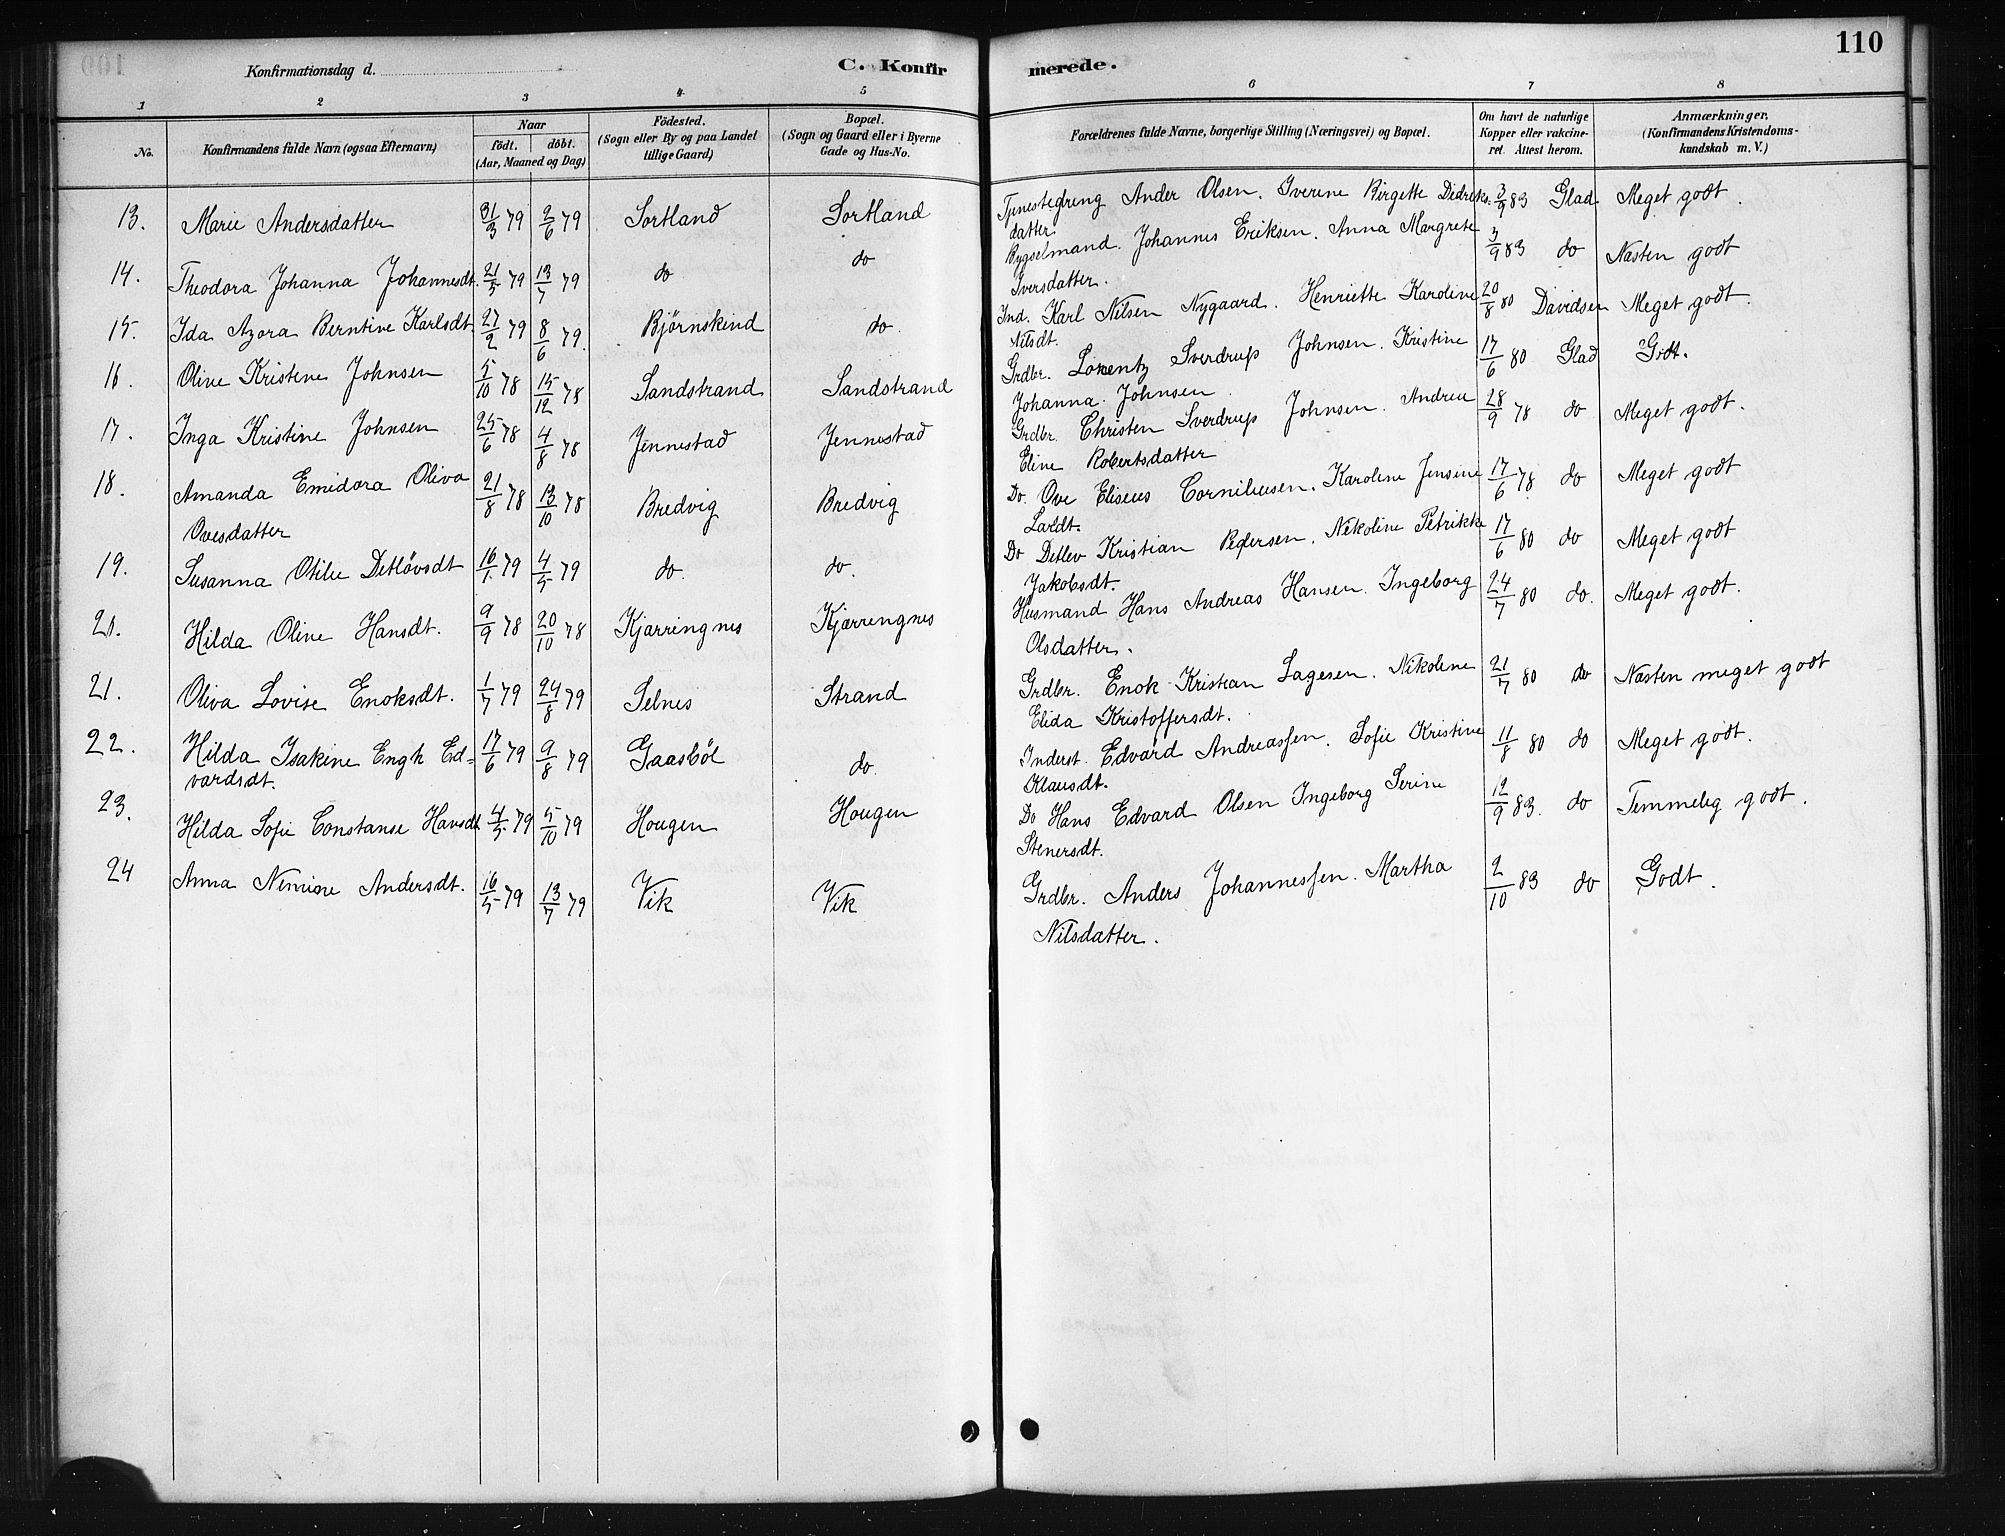 110
Konfirmationsdag d.
C. Konfirmerede.
1 2 3 4 5 6 7 8
No.
Konfirmandens fulde Navn (ogsaa Efternavn)
Naar
födt. döbt.
(Aar, Maaned og Dag)
Födested.
(Sogn eller By og paa Landet
tillige Gaard)
Bopæl.
(Sogn og Gaard eller i Byerne
Gade og Hus-No.
Forældrenes fulde Navne, borgerlige Stilling (Næringsvei) og Bopæl.
Om havt de naturlige
Kopper eller vakcine-
ret. Attest herom.
Anmærkninger.
(Konfirmandens Kristendoms-
kundskab m. V.)
13. Marie Andersdatter 31/3 79 2/6 79 Sortland Sortland Tjenestedreng Ander Olsen. Iverine Birgette Didriks- 3/9 83 Glad Meget godt.
datter
14. Theodora Johanna Johannesdt. 21/5 79 13/7 79 do do Bygselmand. Johannes Eriksen. Anna Margrete 3/9 83 do Næsten godt
Iversdatter.
15. Ida Azora Berntine Karlsdt 27/2 79 8/6 79. Bjørnskind do. Ind. Karl Nilsen Nygaard. Henriette Karoline 20/8 80 Davidsen Meget godt.
Nilsdt.
16. Oline Kristine Johnsen 5/10 78 15/12 78 Sandstrand Sandstrand Grdbr. Lorentz Sverdrup Johnsen. Kristine 17/6 80 Glad Godt.
Johanna Johnsen
17. Inga Kristine Johnsen 25/6 78 4/8 78 Jennestad Jennestad Grdbr. Christen Sverdrup Johnsen. Andrea 28/9 78 do Meget godt.
Eline Robertsdatter
18. Amanda Emidora Oliva 21/8 78 13/10 78 Bredvig Bredvig Do. Ove Eliseus Corneliusen. Karoline Jensine 17/6 78 do Meget godt
Ovesdatter
Larsdt.
19. Susanna Otilie Detløvsdt 16/1 79 4/5 79 do. do. Do Detlev Kristian Pedersen. Nikoline Petrikke 17/6 80 do Meget godt
Jakobsdt.
20. Hilda Oline Hansdt. 9/9 78 20/10 78 Kjærringnes Kjærringnes Husmand Hans Andreas Hansen. Ingeborg 24/7 80 do. Meget godt.
Olsdatter.
21. Oliva Lovise Enoksdt. 1/7 79 24/8 79 Selnes Strand Grdbr. Enok Kristian Lagesen. Nikoline 21/7 80 do Næsten meget godt
Elida Kristoffersdt.
22. Hilda Isakine Engh Ed= 17/6 79 9/8 79 Gaasböl do. Inderst. Edvard Andreassen. Sofie Kristine 11/8 80 do Meget godt.
vardsdt.
Klausdt.
23. Hilda Sofie Constanse Hansdt 4/5 79 5/10 79 Hougen Hougen Do Hans Edvard Olsen Ingeborg Serine 12/9 83. do Temmelig godt.
Stenersdt.
24 Anna Nemine Andersdt. 16/5 79 13/7 79 Vik Vik Grdbr. Anders Johannessen. Martha 2/10 83 do Godt.
Nilsdatter.